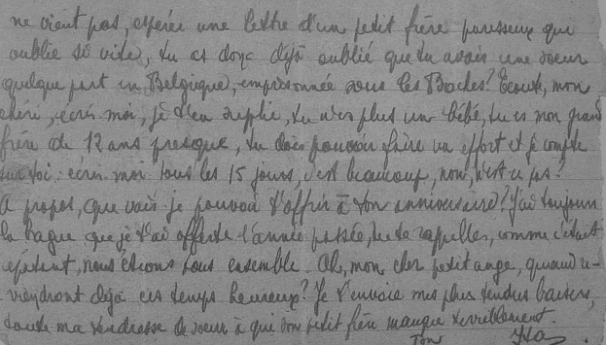 ne vient pas, espérer une lettre d'un petit frère paresseux qui
oublie si vite, tu as donc déjà oublié que tu avais une soeur
quelque part en Belgique, emprisonnée sous les Boches? Ecoute, mon
chéri, écris moi, je t'en supplie, tu n'es plus un bébé, tu es mon grand
frère de 12 ans presque, tu dois pouvoir faire un effort et je compte
sur toi: écris moi tous les 15 jours, c'est beaucoup, non, n'est ce pas?
A propos, que vais je pouvoir t'offrir à ton anniversaire? J'ai toujours
la bague que je t'ai offerte l'année passée, te rappelles, comme c'était
épatant, nous étions tous ensemble. Oh, mon cher petit ange, quand re-
viendront déjà ces temps heureux? Je t'envoie mes plus tendres baisers,
toute ma tendresse de soeur à qui son petit frère manque terriblement.
Ton